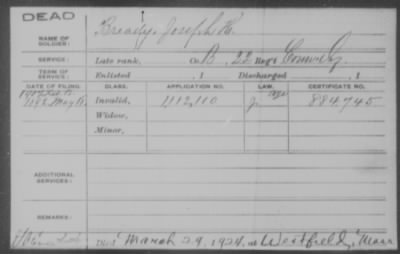 DEAD
NAME OF SOLDIER: Bready, Joseph H.
SERVICE: Late rank, Co. B, 22 Reg't Conn. Inf.
TERM OF SERVICE: Enlisted , 1 Discharged , 1
DATE OF FILING. CLASS. APPLICATION NO. LAW. CERTIFICATE NO.
1892 May Invalid, 1112,110 J. 884745
Widow,
Minor,
ADDITIONAL SERVICES:
REMARKS:
Died March 29, 1924, at Westfield, Mass